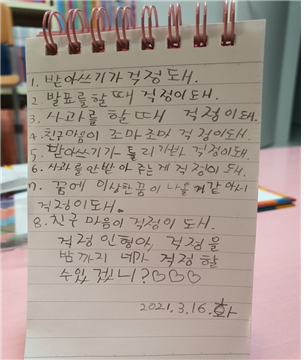 1. 받아쓰기가 걱정돼.
2. 발표를할 때 걱정이돼.
3. 사과를 할 때 걱정이돼.
4. 친구마음이 조마조마 걱정이돼.
5. 받아쓰기가 틀리가봐 걱정이돼.
6. 사과를안받아 주는게 걱정이 돼.
7. 꿈에 이상한꿈이 나올거같아서
걱정이돼.
8. 친구 마음이 걱정이 돼.
걱정 인형아, 걱정을
밤까지 네가 걱정 할
수있 겠니?♡♡♡
2021.3.16.화